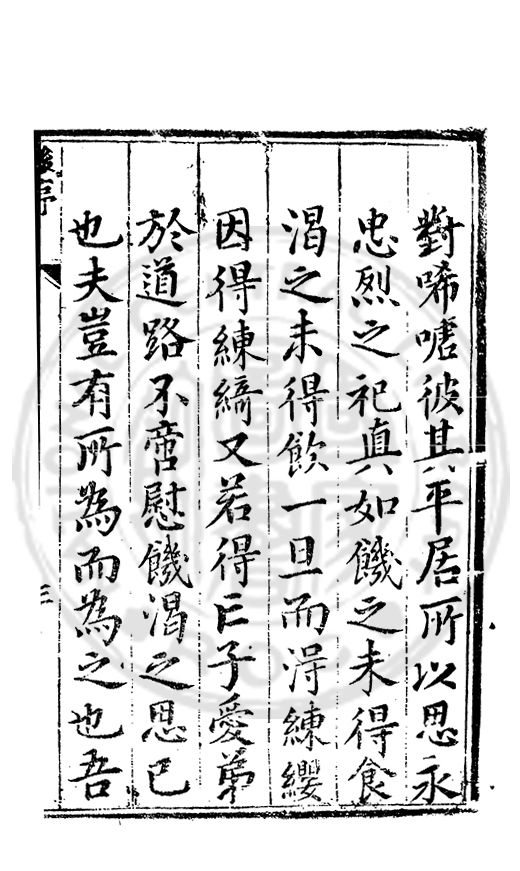 對唏嘘彼其平居所以思永
忠烈之祀真如饑之未得食
渴之未得飲一旦而得練纓
因得練綺又若得亡子愛弟
於道路不啻慰饑渴之思已
也夫豈有所為而為之也吾
亭
三